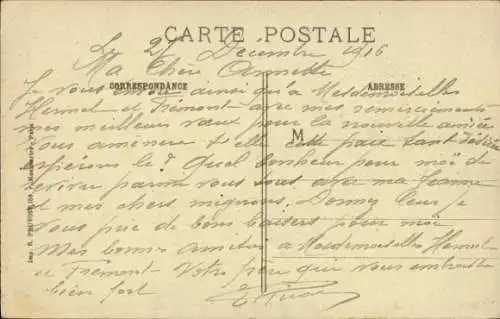 CARTE POSTALE
Le 27 Décembre 1916
Ma Chère Annette
CORRESPONDANCE
ADRESSE
Je vous envoie ainsi qu'à Mesdemoiselles
Hermet et Frémont avec mes remerciements
mes meilleurs vœux pour la nouvelle année
M
Vous amènera t-elle cette paix tant désirée
espérons le! Quel bonheur pour moi de
revivre parmi vous tous avec ma Jeanne
et mes chers mignons. Donnez leur je
vous prie de bons baisers pour moi
Mes bonnes amitiés à Mesdemoiselles Hermet
et Frémont. Votre père qui vous embrasse
bien fort